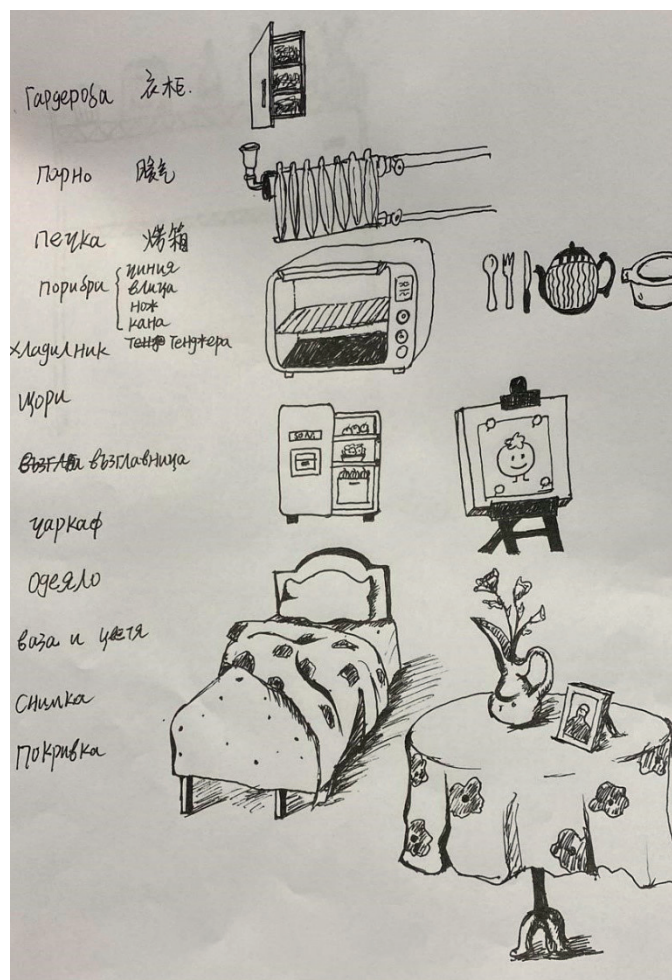 Гардероба 衣柜.
Парно 暖气
печка 烤箱
порибри
чиния
влица
нож
кана
Тенджера
хладилник
щори
възглавница
чаркаф
одеяло
ваза и цветя
снимка
покривка